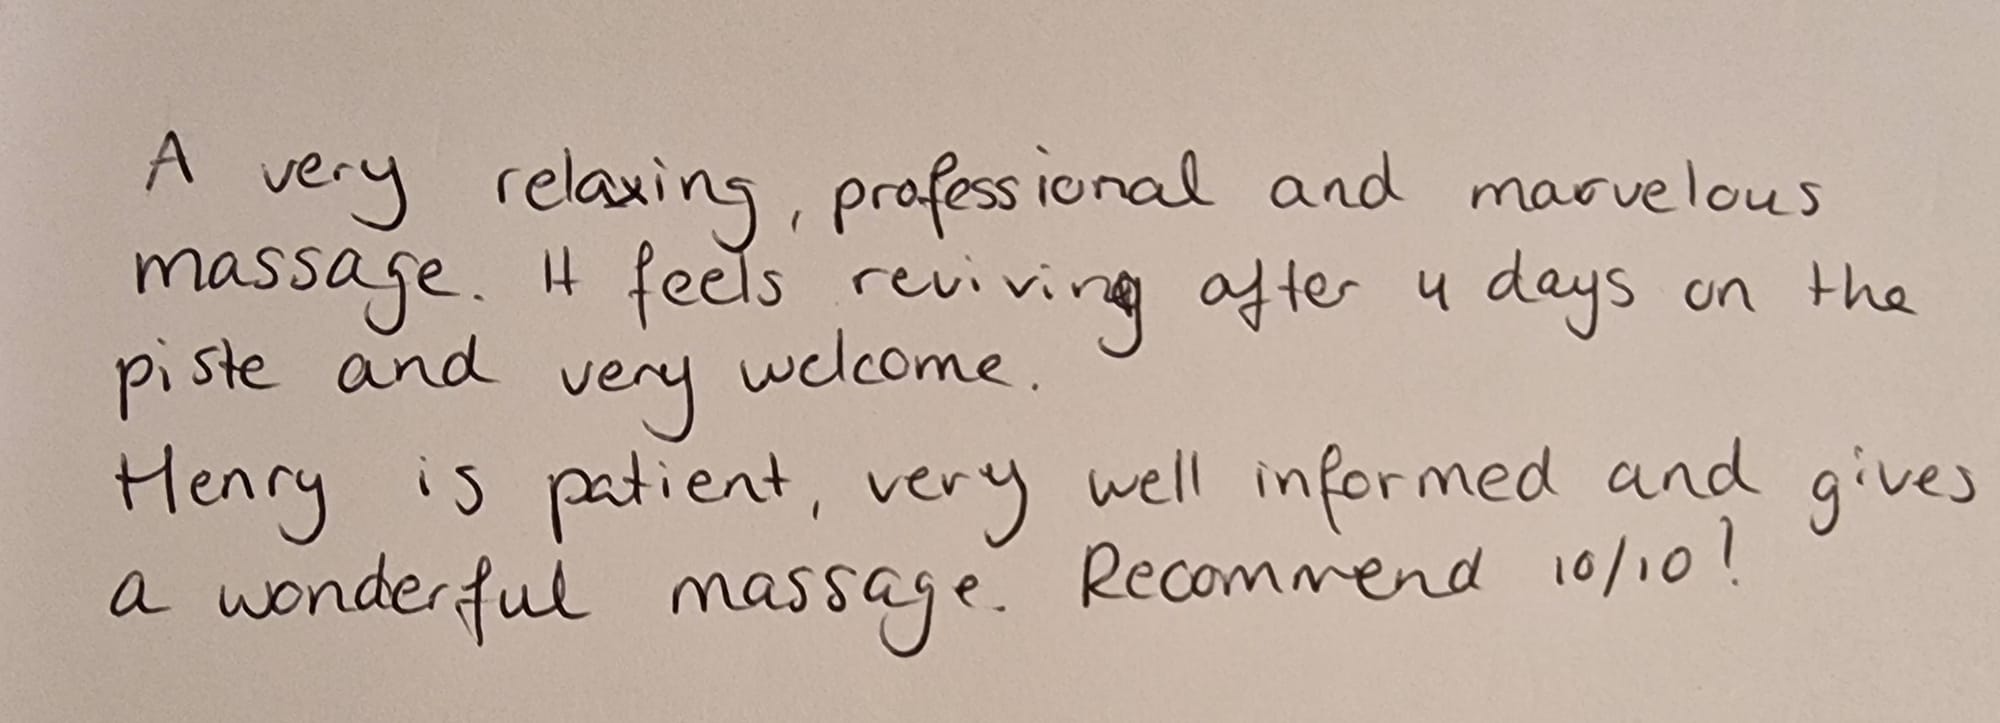 A very relaxing, professional and marvelous
massage. It feels reviving after 4 days on the
piste and very welcome.
Henry is patient, very well informed and gives
a wonderful massage. Recommend 10/10!